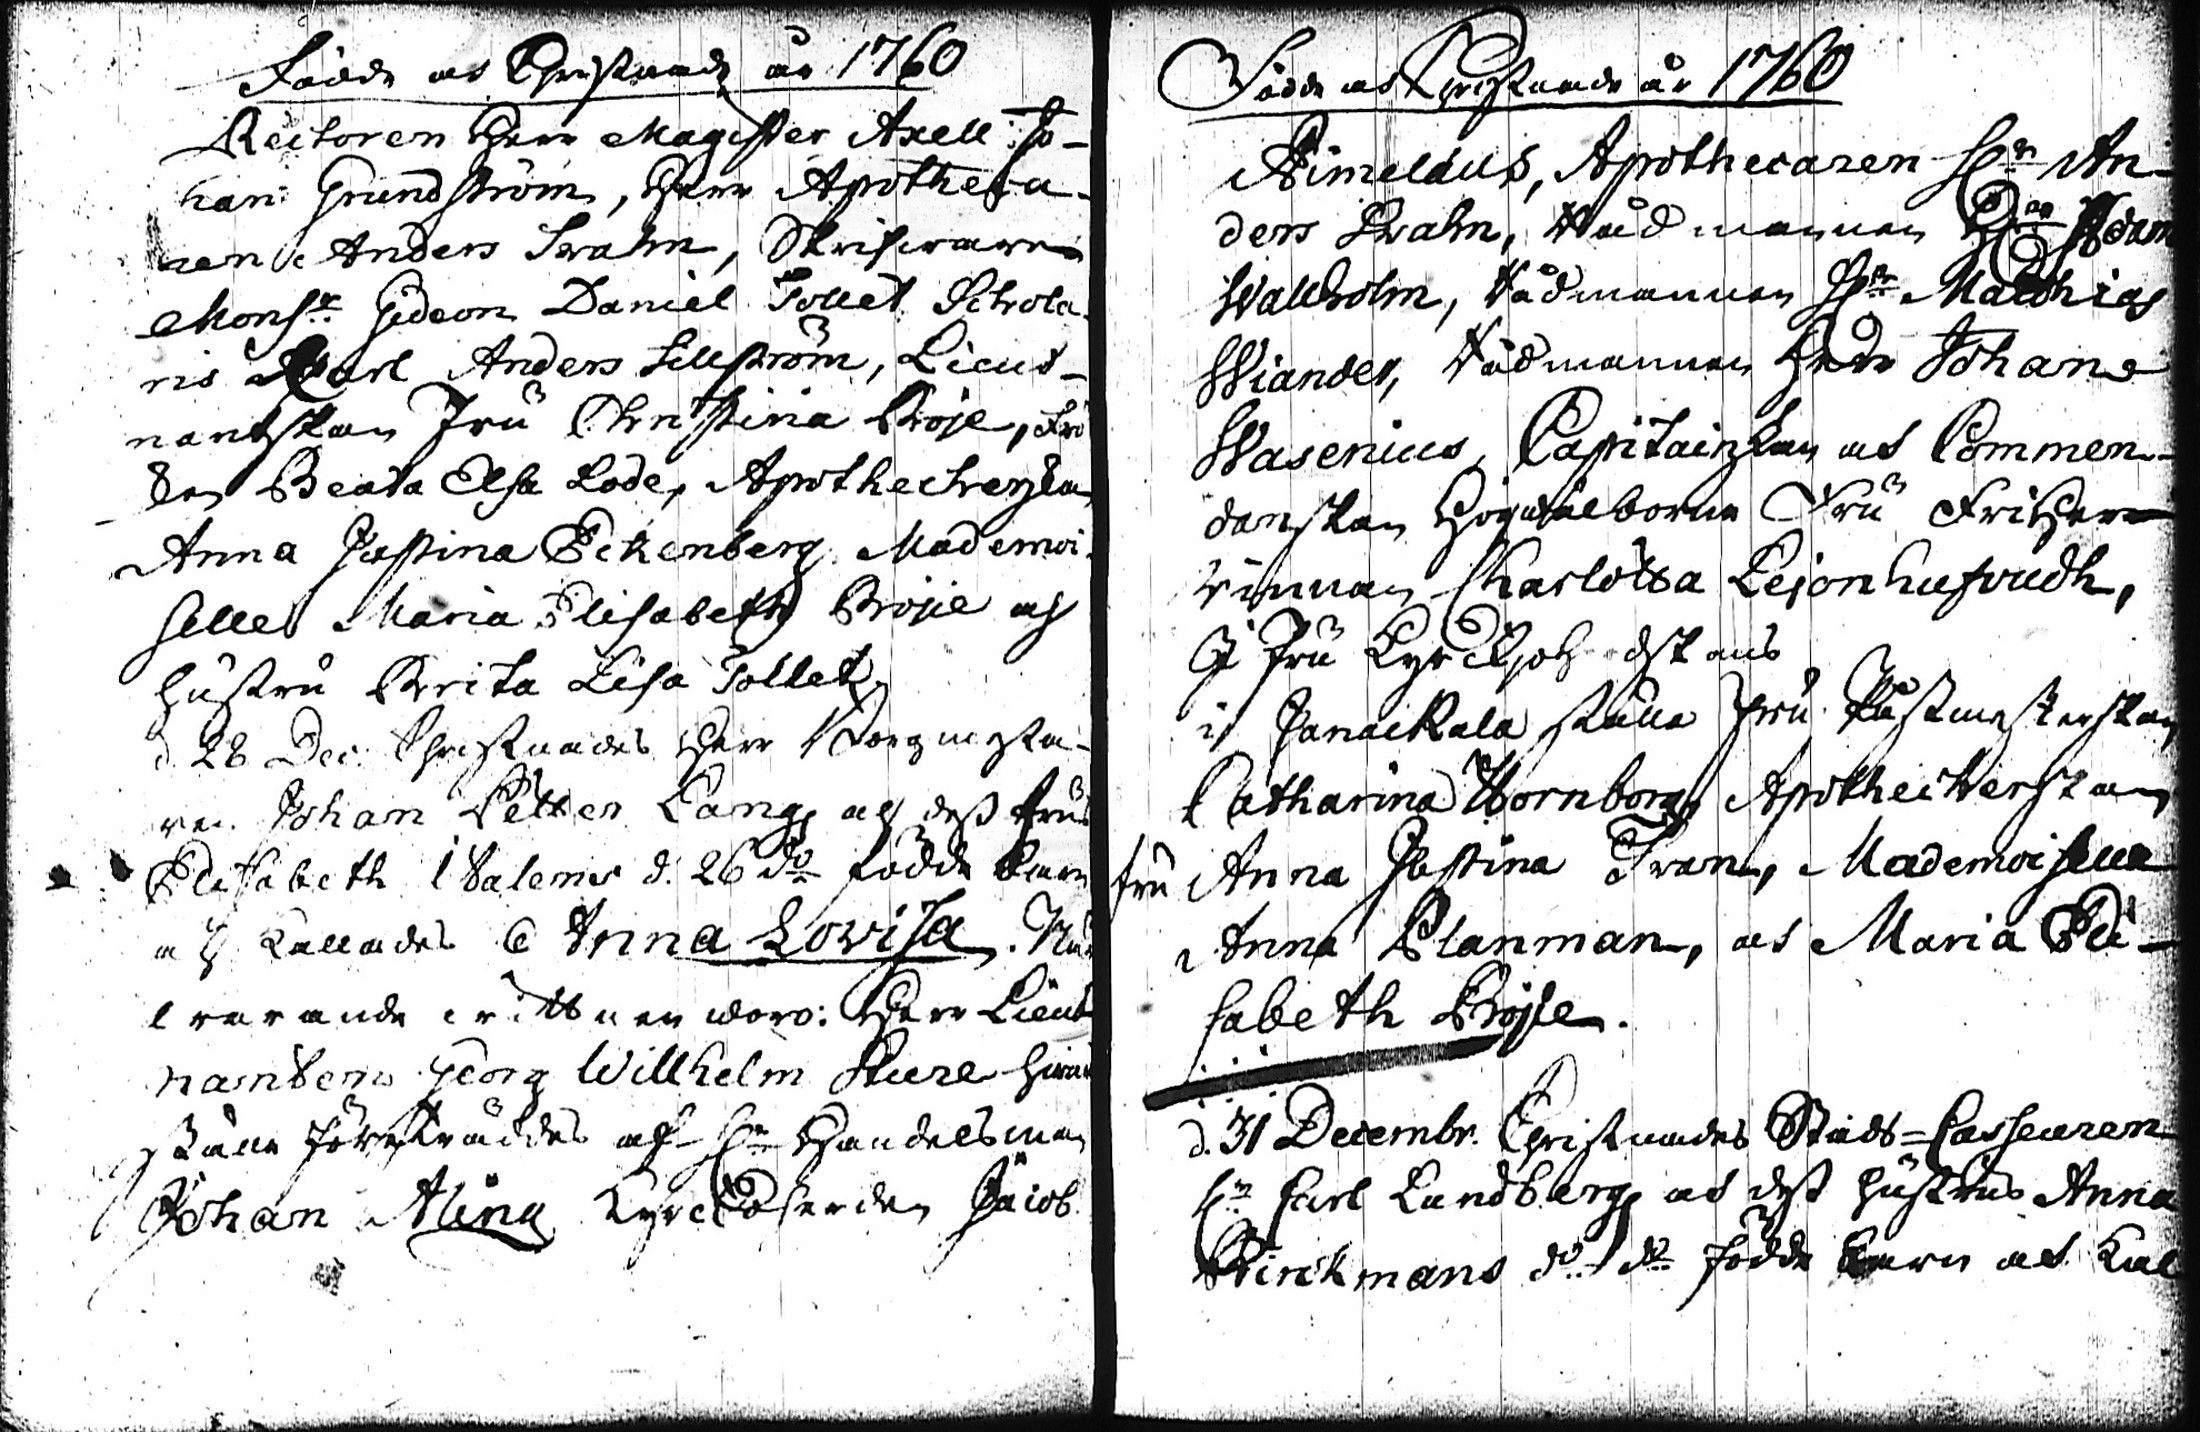 Födde och Christnade år 1760
Rectoren Herr Magister Axell Jo-
han Grundström, Herr Apotheca-
ren Anders Swahn, Skrifvaren
Monsr Gideon Daniel Tollet Schola-
ris Karl Anders Sellström, Lieut-
nantskan Fru Christina Böje, Frö
ken Beata Elsa Lode, Apothecherskan
Anna Justina Eckenberg, Mademoi-
selle Maria Elisabeth Böje och
hustru Brita Lisa Tollet.
d. 28 Dec. Christnades Herr Borgmesta-
ren Johan Petter Lang och dess frus
Elisabeth Salenis d. 26 do födde barn
och kallades Anna Lovisa. När
varande vittnen woro: Herr Lieut
nanten Georg Willhelm Sture hwars
ställe företräddes af Hr Handelsman
Johan Aling Kyrckoherden Jacob
Födde och Christnade år 1760
Rimelaus, Apothecaren Hr An-
ders Swahn, Rådmannen Hr Adam
Wallholm, Rådmannen Hr Matthias
Wiander, Rådmannen Herr Johan
Wasenius, Capitainskan och Commen-
danskan Högwälborna Fru Friherr
innan Charlotta Lejonhufvudh,
i Janackala ställe Fru Postmesterskan
Catharina Hornborg, Apotheckerskan
fru Anna Justina Svan, Mademoiselle
Anna Planman, och Maria Eli-
sabeth Böije.
d. 31 Decembr. Christnades Stads-Casseuren
Hr Carl Lundberg och dess hustrus Anna
Birckmans do do födde barn och kal